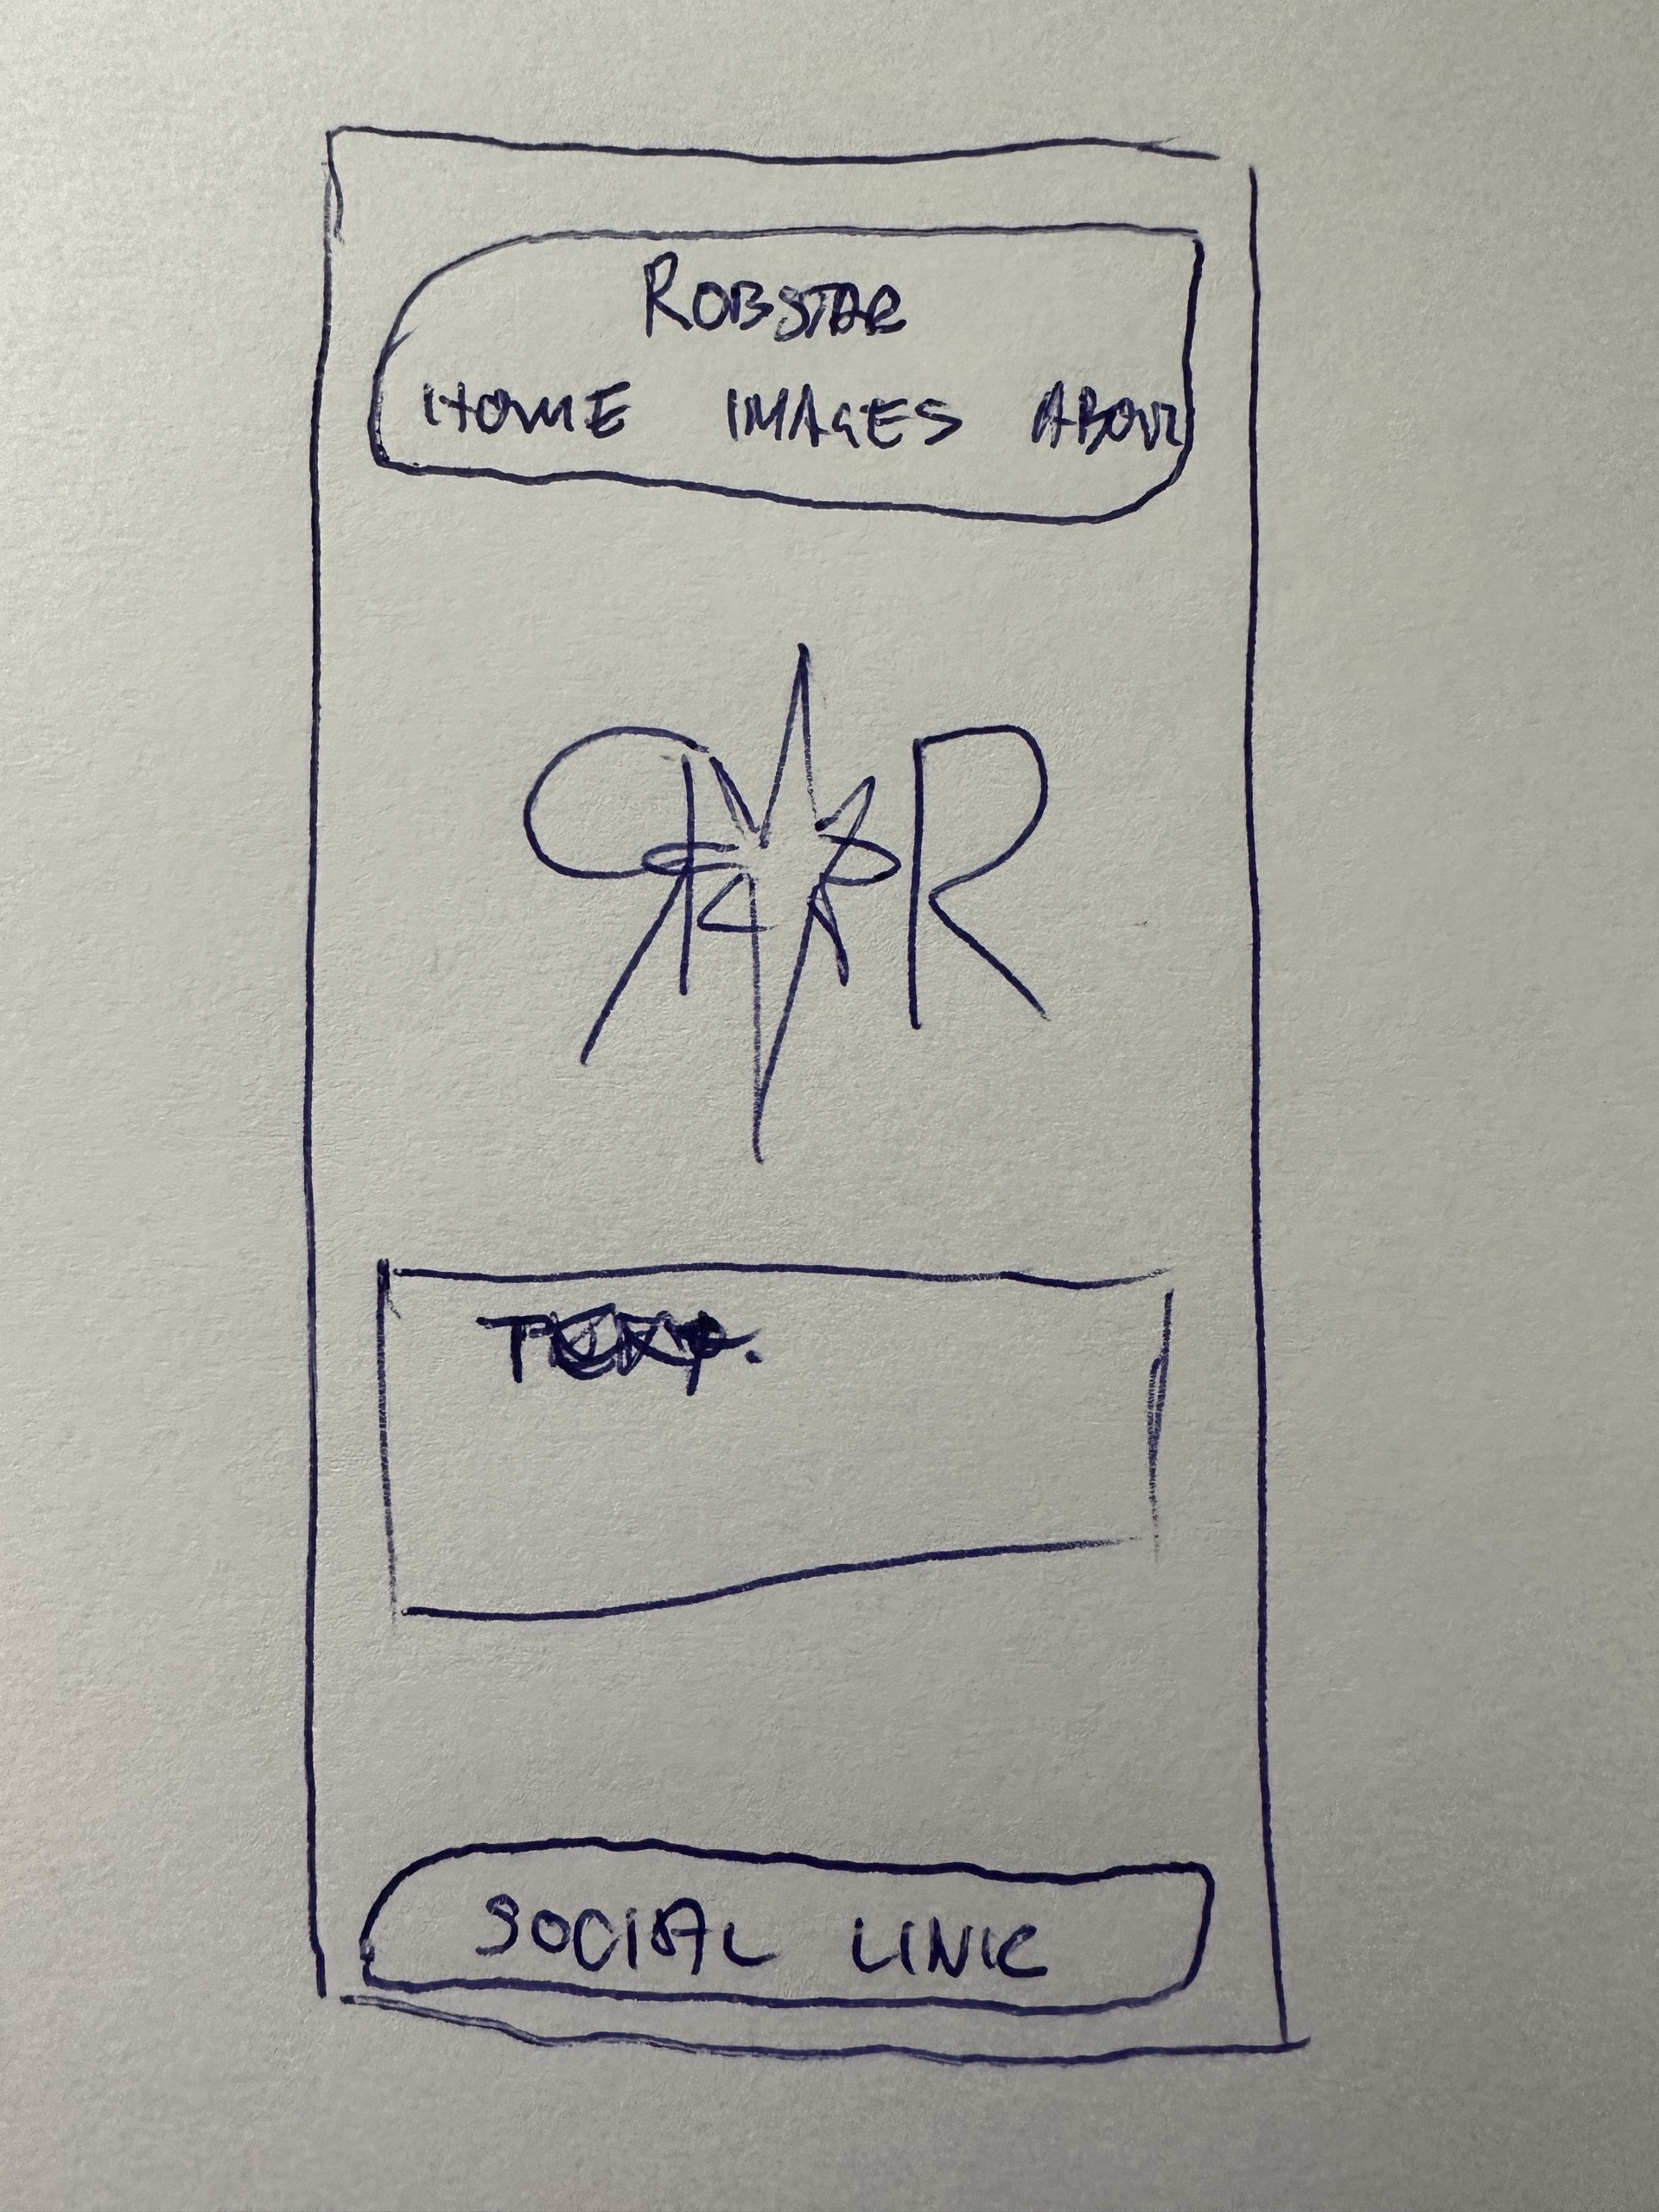 ROBSTAR
HOME IMAGES ABOUT
R R
SOCIAL LINK